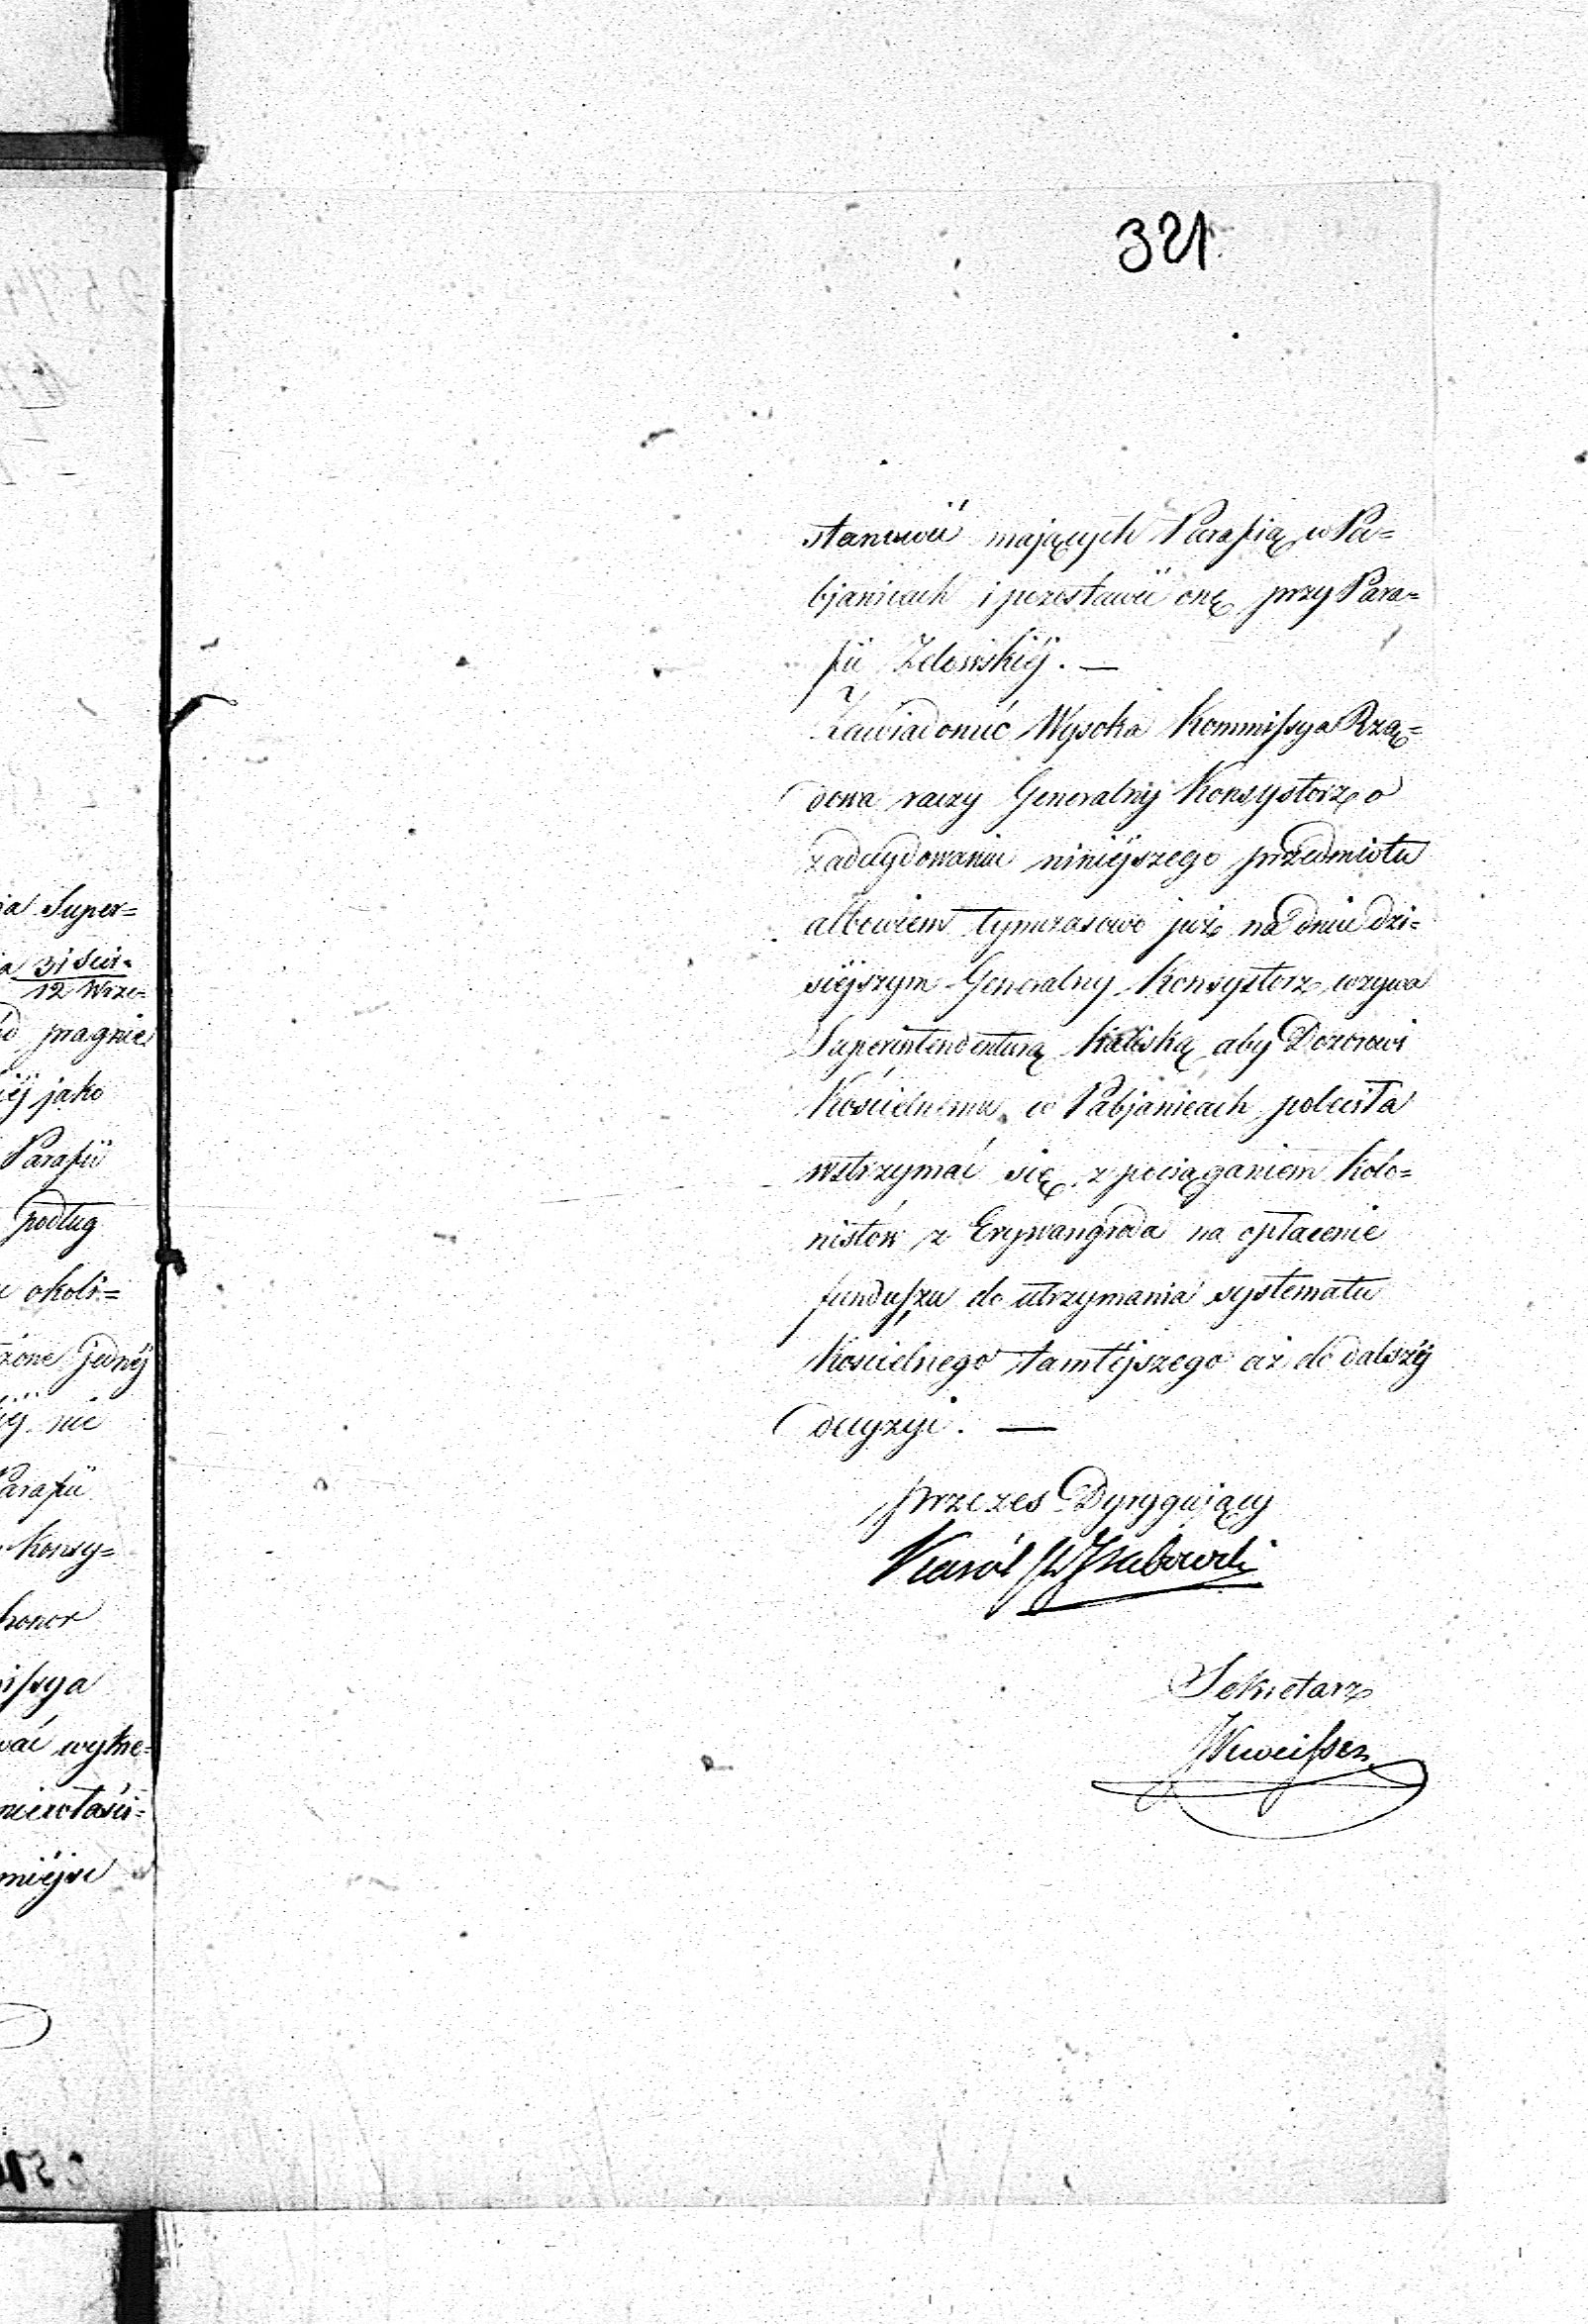 321
stanowić mających Parafią w Pa=
bjanicach i pozostawić onę przy Para=
fii Zelowskiéj. —
Zawiadomić Wysoka Kommissya Rzą=
dowa raczy Generalny Konsystorz o
zadecydowaniu niniéjszego przedmiotu
albowiem tymczasowo już na dniu dzi=
siéjszym Generalny Konsystorz wzywa
Superintendenturą Kaliską aby Dozorowi
Kościelnemu w Pabjanicach poleciła
wstrzymać się z pociąganiem Kolo=
nistów z Erywangroda na opłacenie
funduszu do utrzymania systematu
Kościelnego tamtéjszego aż do dalszéj
decyzyi. —
Prezes Dyrygujący
Karól
Sekretarz
ia Super=
a 31 Sier.
12 Wrze=
pragnie
iéj jako
Parafii
podług
okoli=
żone jednéj
iéj nie
Parafii
Konsy=
honor
issya
wać wyrze=
niewłaści=
miéjsc